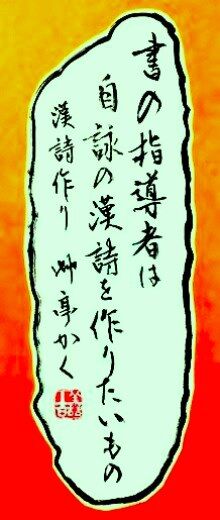 書の指導者は
自詠の漢詩を作りたいもの
漢詩作り 艸亭かく